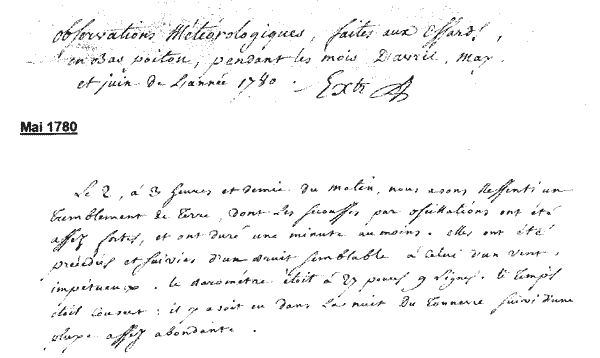 observations Météorologiques, faites aux Essards,
en Bas poitou, pendant les mois D'avril, may
et juin de L'année 1780. Extr
Mai 1780
Le 2, à 3 heures et demie du matin, nous avons Ressenti un
Tremblement de Terre, dont Les secousses par oscillations ont été
assez fortes, et ont duré une minute au moins. elles ont été
précédées et suivies d'un Bruit semblable à Celui d'un vent
impétueux. le Baromètre étoit à 27 pouces 9 Lignes. le Temps
étoit Couvert : il y avoit eu dans La nuit Du Tonnerre suivi d'une
pluye assez abondante.